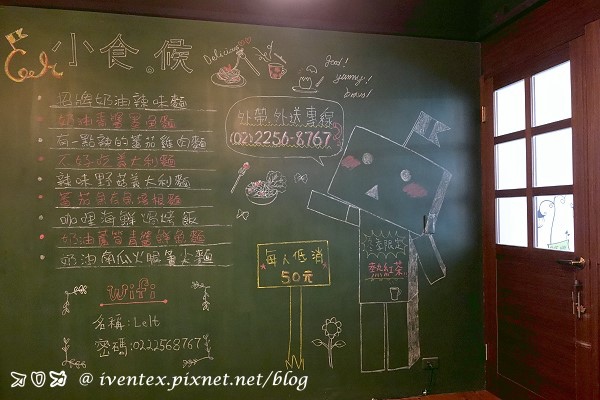 小食。候
Delicious
good!
yummy!
Bravo!
招牌奶油辣味麵
奶油青醬墨魚麵
有一點辣的蕃茄雞肉麵
不好吃義大利麵
辣味野菇義大利麵
咖哩海鮮焗烤飯
奶油蘆筍青醬鮮魚麵
外帶.外送專線
(02)2256-8767
每人低消
50元
熱紅茶
wifi
名稱:Lelt
密碼:0222568767
@ iventex.pixnet.net/blog